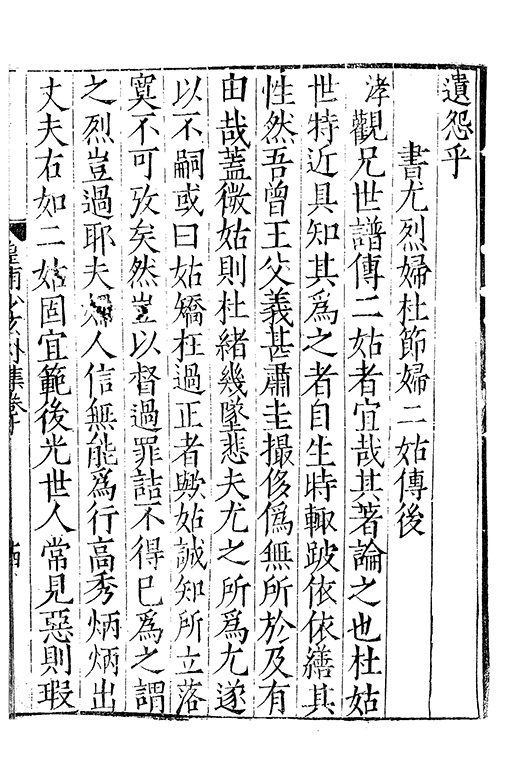 遺怨乎
書尤烈婦杜節婦二姑傳後
涍觀兄世譜傳二姑者宜哉其著論之也杜姑
世特近具知其爲之者自生時輙跛依依繕其
性然吾曾王父義甚肅圭撮侈僞無所於及有
由哉蓋微姑則杜緒幾墜悲夫尤之所爲尢遂
以不嗣或曰姑矯枉過正者歟姑誠知所立落
寞不可攷矣然豈以督過罪詰不得已爲之謂
之烈豈過耶夫婦人信無能爲行高秀炳炳出
丈夫右如二姑固宜範後光世人常見惡則瑕
皇甫少玄外集卷十